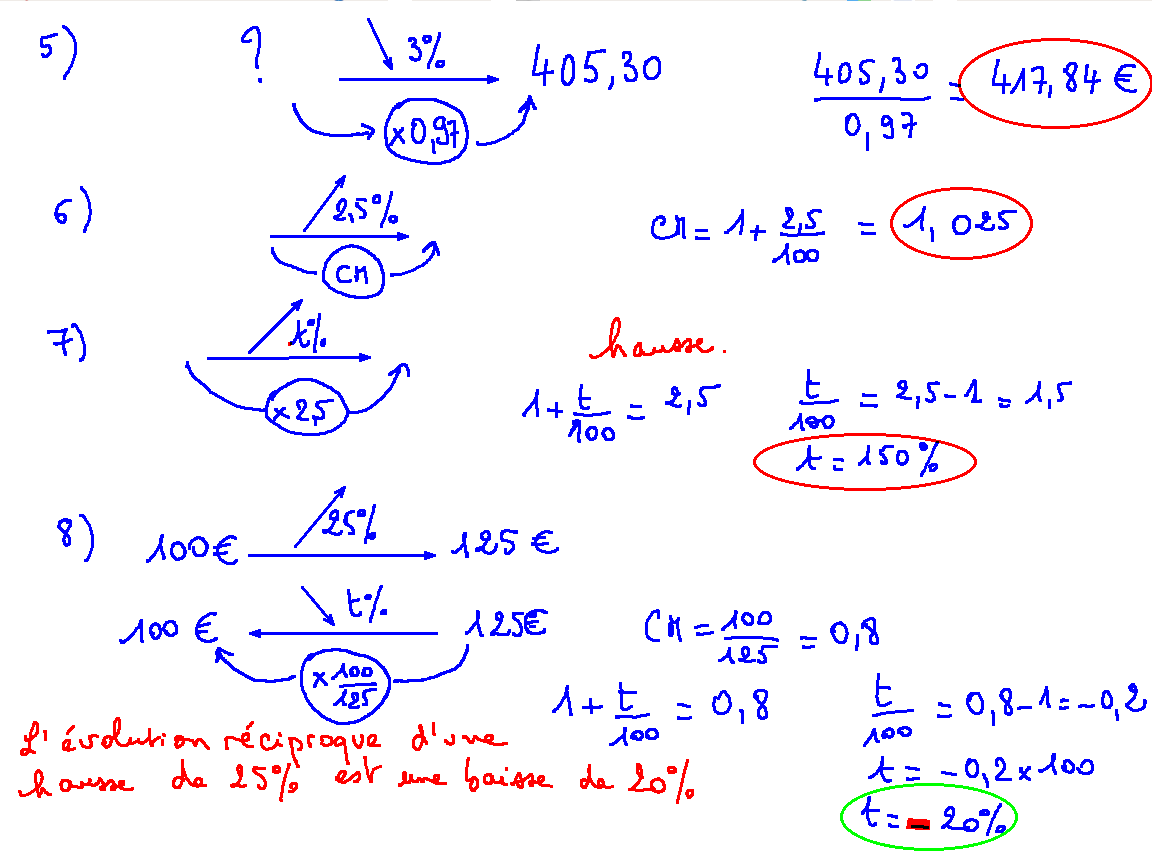 5) ? 3% 405,30 405,30/0,97 = 417,84 €
×0,97
6) 2,5% CM = 1 + 2,5/100 = 1,025
CM
7) t% hausse.
×2,5 1 + t/100 = 2,5 t/100 = 2,5 - 1 = 1,5
t = 150%
8) 100€ 25% 125 €
100 € t% 125€ CM = 100/125 = 0,8
× 100/125 1 + t/100 = 0,8 t/100 = 0,8 - 1 = -0,2
L'évolution réciproque d'une
hausse de 25% est une baisse de 20% t = -0,2 × 100
t = - 20%